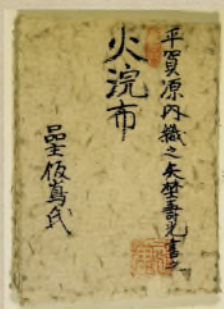 平賀源内織之矢埜壽光書之
火浣布
品主飯嶌氏